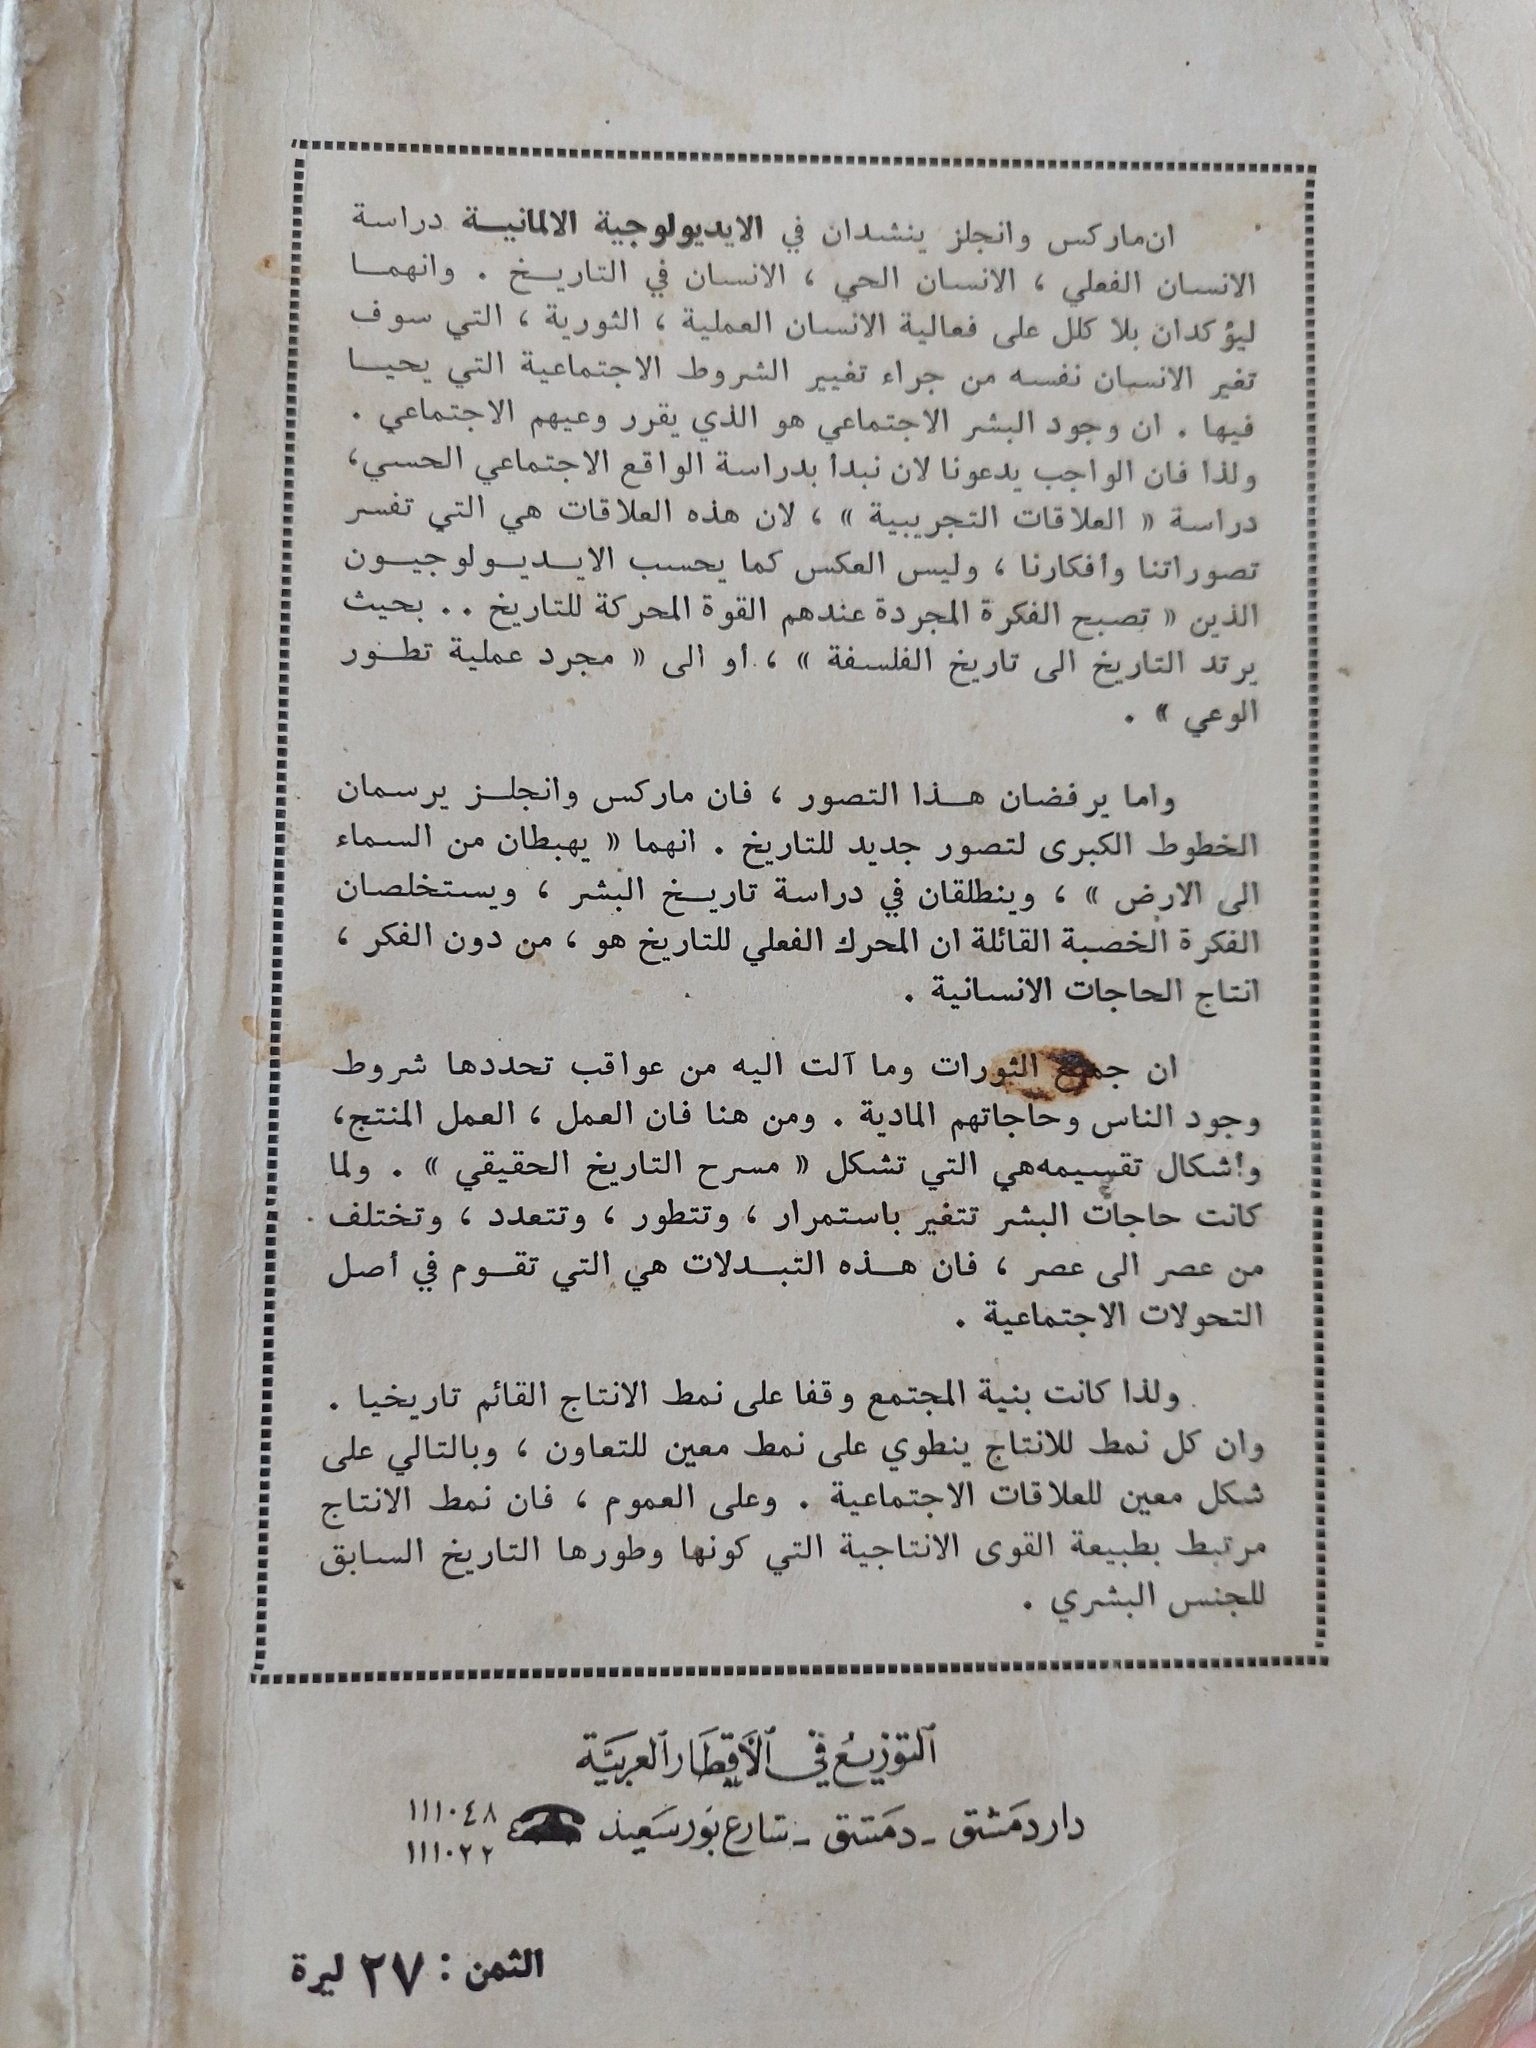 ان ماركس وانجلز ينشدان في الايديولوجية الالمانيـة دراسة
الانسان الفعلي ، الانسان الحي ، الانسان في التاريـخ . وانهمـا
ليؤكدان بلا كلل على فعالية الانسان العملية ، الثورية ، التي سوف
تغير الانسان نفسه من جراء تغيير الشروط الاجتماعية التي يحيـا
فيها . ان وجود البشر الاجتماعي هو الذي يقرر وعيهم الاجتماعي .
ولذا فان الواجب يدعونا لان نبدأ بدراسة الواقع الاجتماعي الحسي،
دراسة « العلاقات التجريبية » ، لان هذه العلاقات هي التي تفسر
تصوراتنا وأفكارنا ، وليس العكس كما يحسب الايـديـولوجيـون
الذين « تصبح الفكرة المجردة عندهم القوة المحركة للتاريخ . . بحيث
يرتد التاريخ الى تاريخ الفلسفة » ، أو الى « مجرد عملية تطـور
الوعي » .
واما يرفضان هـذا التصور ، فان ماركس وانجلـز يرسمان
الخطوط الكبرى لتصور جديد للتاريخ . انهما « يهبطان من السماء
الى الارض » ، وينطلقان في دراسة تاريـخ البشر ، ويستخلصان
الفكرة الخصبة القائلة ان المحرك الفعلي للتاريخ هو ، من دون الفكر ،
انتاج الحاجات الانسانية .
ان جميع الثورات وما آلت اليه من عواقب تحددها شروط
وجود الناس وحاجاتهم المادية . ومن هنا فان العمل ، العمل المنتج،
وأشكال تقسيمه هي التي تشكل « مسرح التاريخ الحقيقي » . ولما
كانت حاجات البشر تتغير باستمرار ، وتتطور ، وتتعدد ، وتختلف
من عصر الى عصر ، فان هـذه التبـدلات هي التي تقـوم في أصل
التحولات الاجتماعية .
ولذا كانت بنية المجتمع وقفا على نمط الانتاج القائم تاريخيا .
وان كل نمط للانتاج ينطوي على نمط معين للتعاون ، وبالتالي على
شكل معين للعلاقات الاجتماعية . وعلى العموم ، فان نمط الانتاج
مرتبط بطبيعة القوى الانتاجية التي كونها وطورها التاريخ السابق
للجنس البشري .
التوزيع في الأقطار العربية
دار دمشق - دمشق - شارع بور سعيد
١١١٠٤٨
١١١٠٢٢
الثمن : ٢٧ ليرة